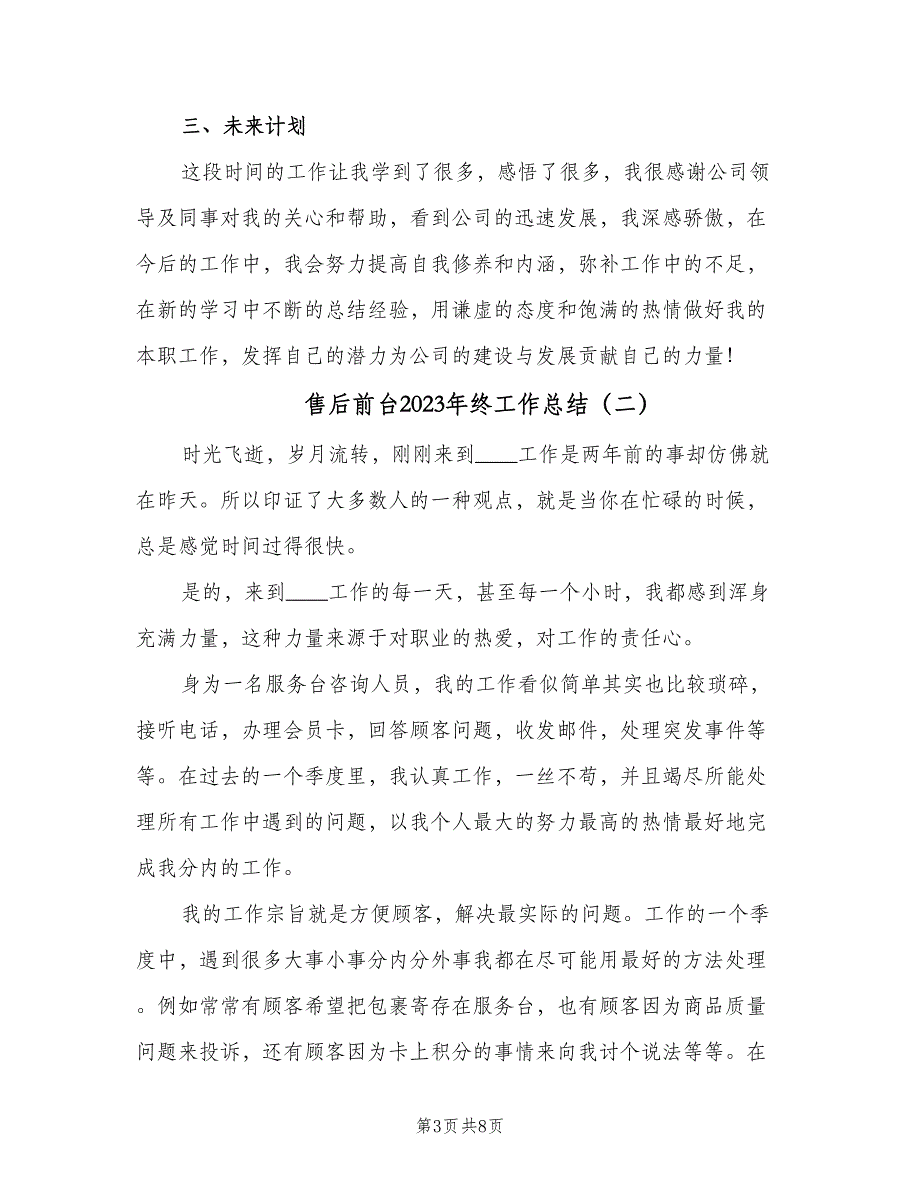 三、未来计划
这段时间的工作让我学到了很多，感悟了很多，我很感谢公司领
导及同事对我的关心和帮助，看到公司的迅速发展，我深感骄傲，在
今后的工作中，我会努力提高自我修养和内涵，弥补工作中的不足，
在新的学习中不断的总结经验，用谦虚的态度和饱满的热情做好我的
本职工作，发挥自己的潜力为公司的建设与发展贡献自己的力量！
售后前台2023年终工作总结（二）
时光飞逝，岁月流转，刚刚来到____工作是两年前的事却仿佛就
在昨天。所以印证了大多数人的一种观点，就是当你在忙碌的时候，
总是感觉时间过得很快。
是的，来到____工作的每一天，甚至每一个小时，我都感到浑身
充满力量，这种力量来源于对职业的热爱，对工作的责任心。
身为一名服务台咨询人员，我的工作看似简单其实也比较琐碎，
接听电话，办理会员卡，回答顾客问题，收发邮件，处理突发事件等
等。在过去的一个季度里，我认真工作，一丝不苟，并且竭尽所能处
理所有工作中遇到的问题，以我个人最大的努力最高的热情最好地完
成我分内的工作。
我的工作宗旨就是方便顾客，解决最实际的问题。工作的一个季
度中，遇到很多大事小事分内分外事我都在尽可能用最好的方法处理
。例如常常有顾客希望把包裹寄存在服务台，也有顾客因为商品质量
问题来投诉，还有顾客因为卡上积分的事情来向我讨个说法等等。在
第3页 共8页